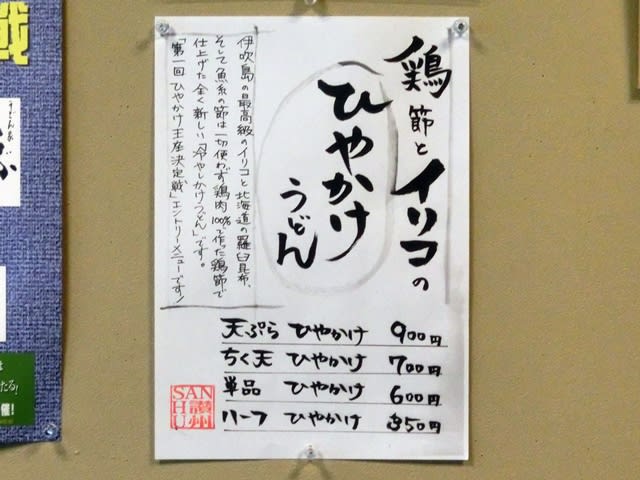 鶏節とイリコの
ひやかけ
うどん
伊吹島の最高級のイリコと北海道の羅臼昆布、
そして魚系の節は一切使わず鶏肉100%で作った鶏節で
仕上げた全く新しい「冷やしかけうどん」です。
「第一回 ひやかけ王座決定戦」エントリーメニューです!
天ぷら ひやかけ 900円
ちく天 ひやかけ 700円
単品 ひやかけ 600円
ハーフ ひやかけ 350円
SAN
HU
讃州
戦
うどんの
ぶ
たる!
催!